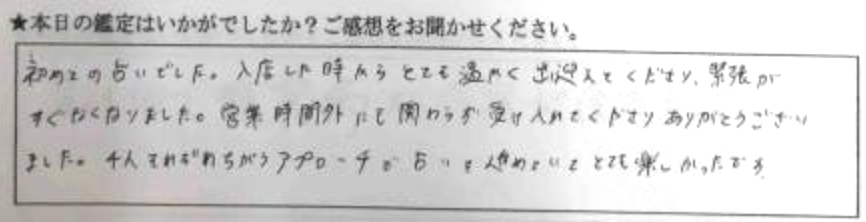 ★本日の鑑定はいかがでしたか？ご感想をお聞かせください。
初めての占いでした。入店した時からとても温かく出迎えてくださり、緊張が
すぐなくなりました。営業時間外にも関わらず受け入れてくださりありがとうござい
ました。4人それぞれちがうアプローチで占いを進めていてとても楽しかったです